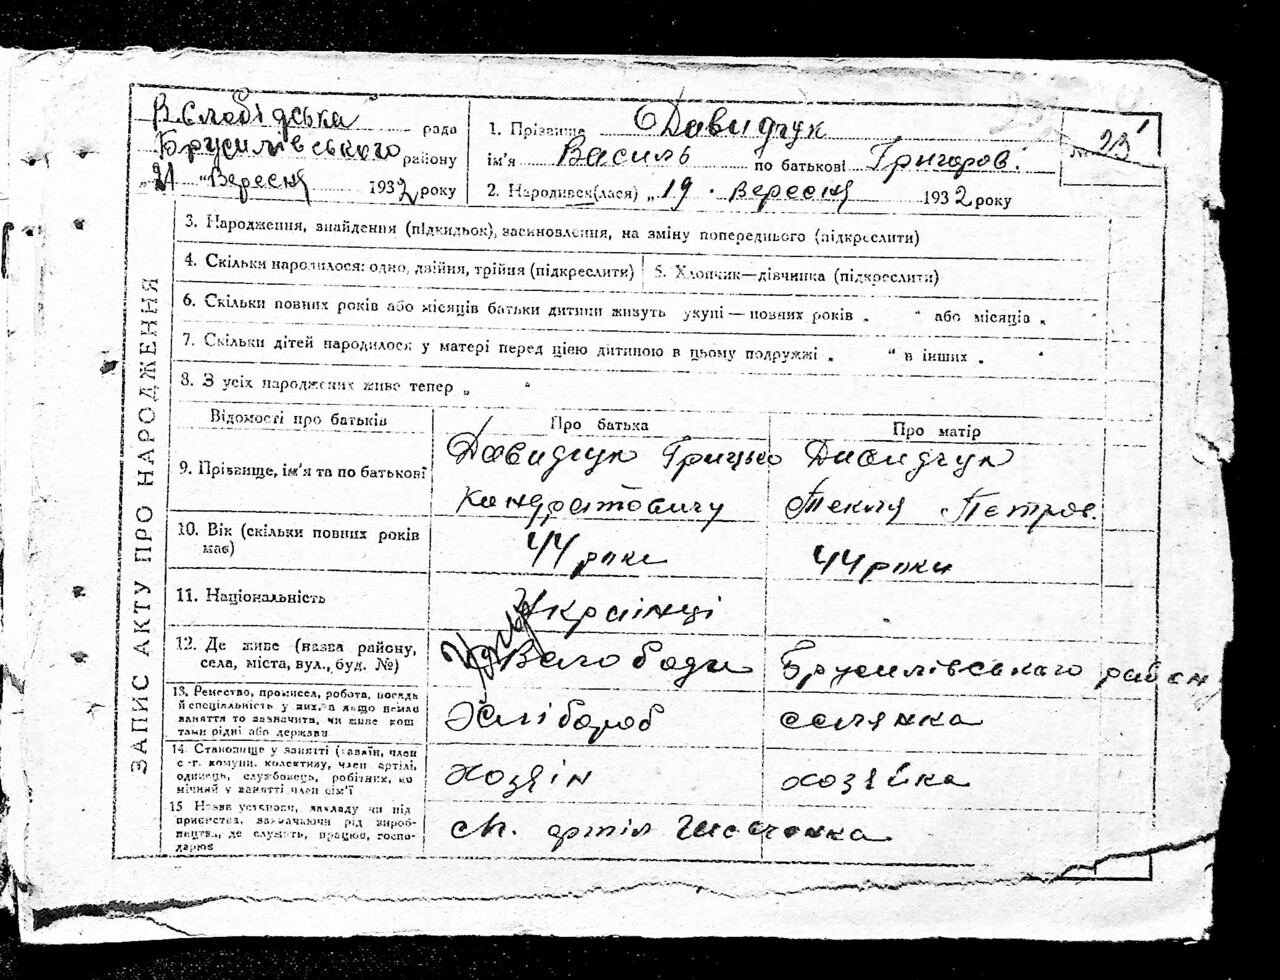 В Слобідська рада
Брусилівського району
„21 "Вересня 1932 року
1. Прізвище Давидчук
ім'я Василь по батькові Григоров.
2. Народився(лася) „19. вересня 1932 року
№ 23
ЗАПИС АКТУ ПРО НАРОДЖЕННЯ
3. Народження, знайдення (підкидьок), засиновлення, на зміну попереднього (підкреслити)
4. Скільки народилося: одно, двійня, трійня (підкреслити)
5. Хлопчик—дівчинка (підкреслити)
6. Скільки повних років або місяців батьки дитини живуть укупі — повних років „ " або місяців „ "
7. Скільки дітей народилося у матері перед цією дитиною в цьому подружжі „ " в інших „ "
8. З усіх народжених живе тепер „ "
Відомості про батьків
Про батька
Про матір
9. Прізвище, ім'я та по батькові
Давидчук Грицько
Кондратовичу
Давидчук
Текля Петров.
10. Вік (скільки повних років
має)
44 роки
44 роки
11. Національність
Українці
12. Де живе (назва району,
села, міста, вул., буд. №)
В слободи Брусилівського район
13. Ремество, промисел, робота, посада
й спеціяльність у них, а якщо немає
заняття то зазначити, чи живе кош
тами рідні або держави
Хлібороб
селянка
14. Становище у занятті (хазяїн, член
с.-г. комуни, колективу, член артілі,
одинець, службовець, робітник, по
мічний у занятті член сім'ї
хозяін
хозяйка
15 Назва установи, закладу чи під
приємства, зазначаючи рід вироб-
ництва, де служить, працює, госпо-
дарює
сп. артіл Шевченка